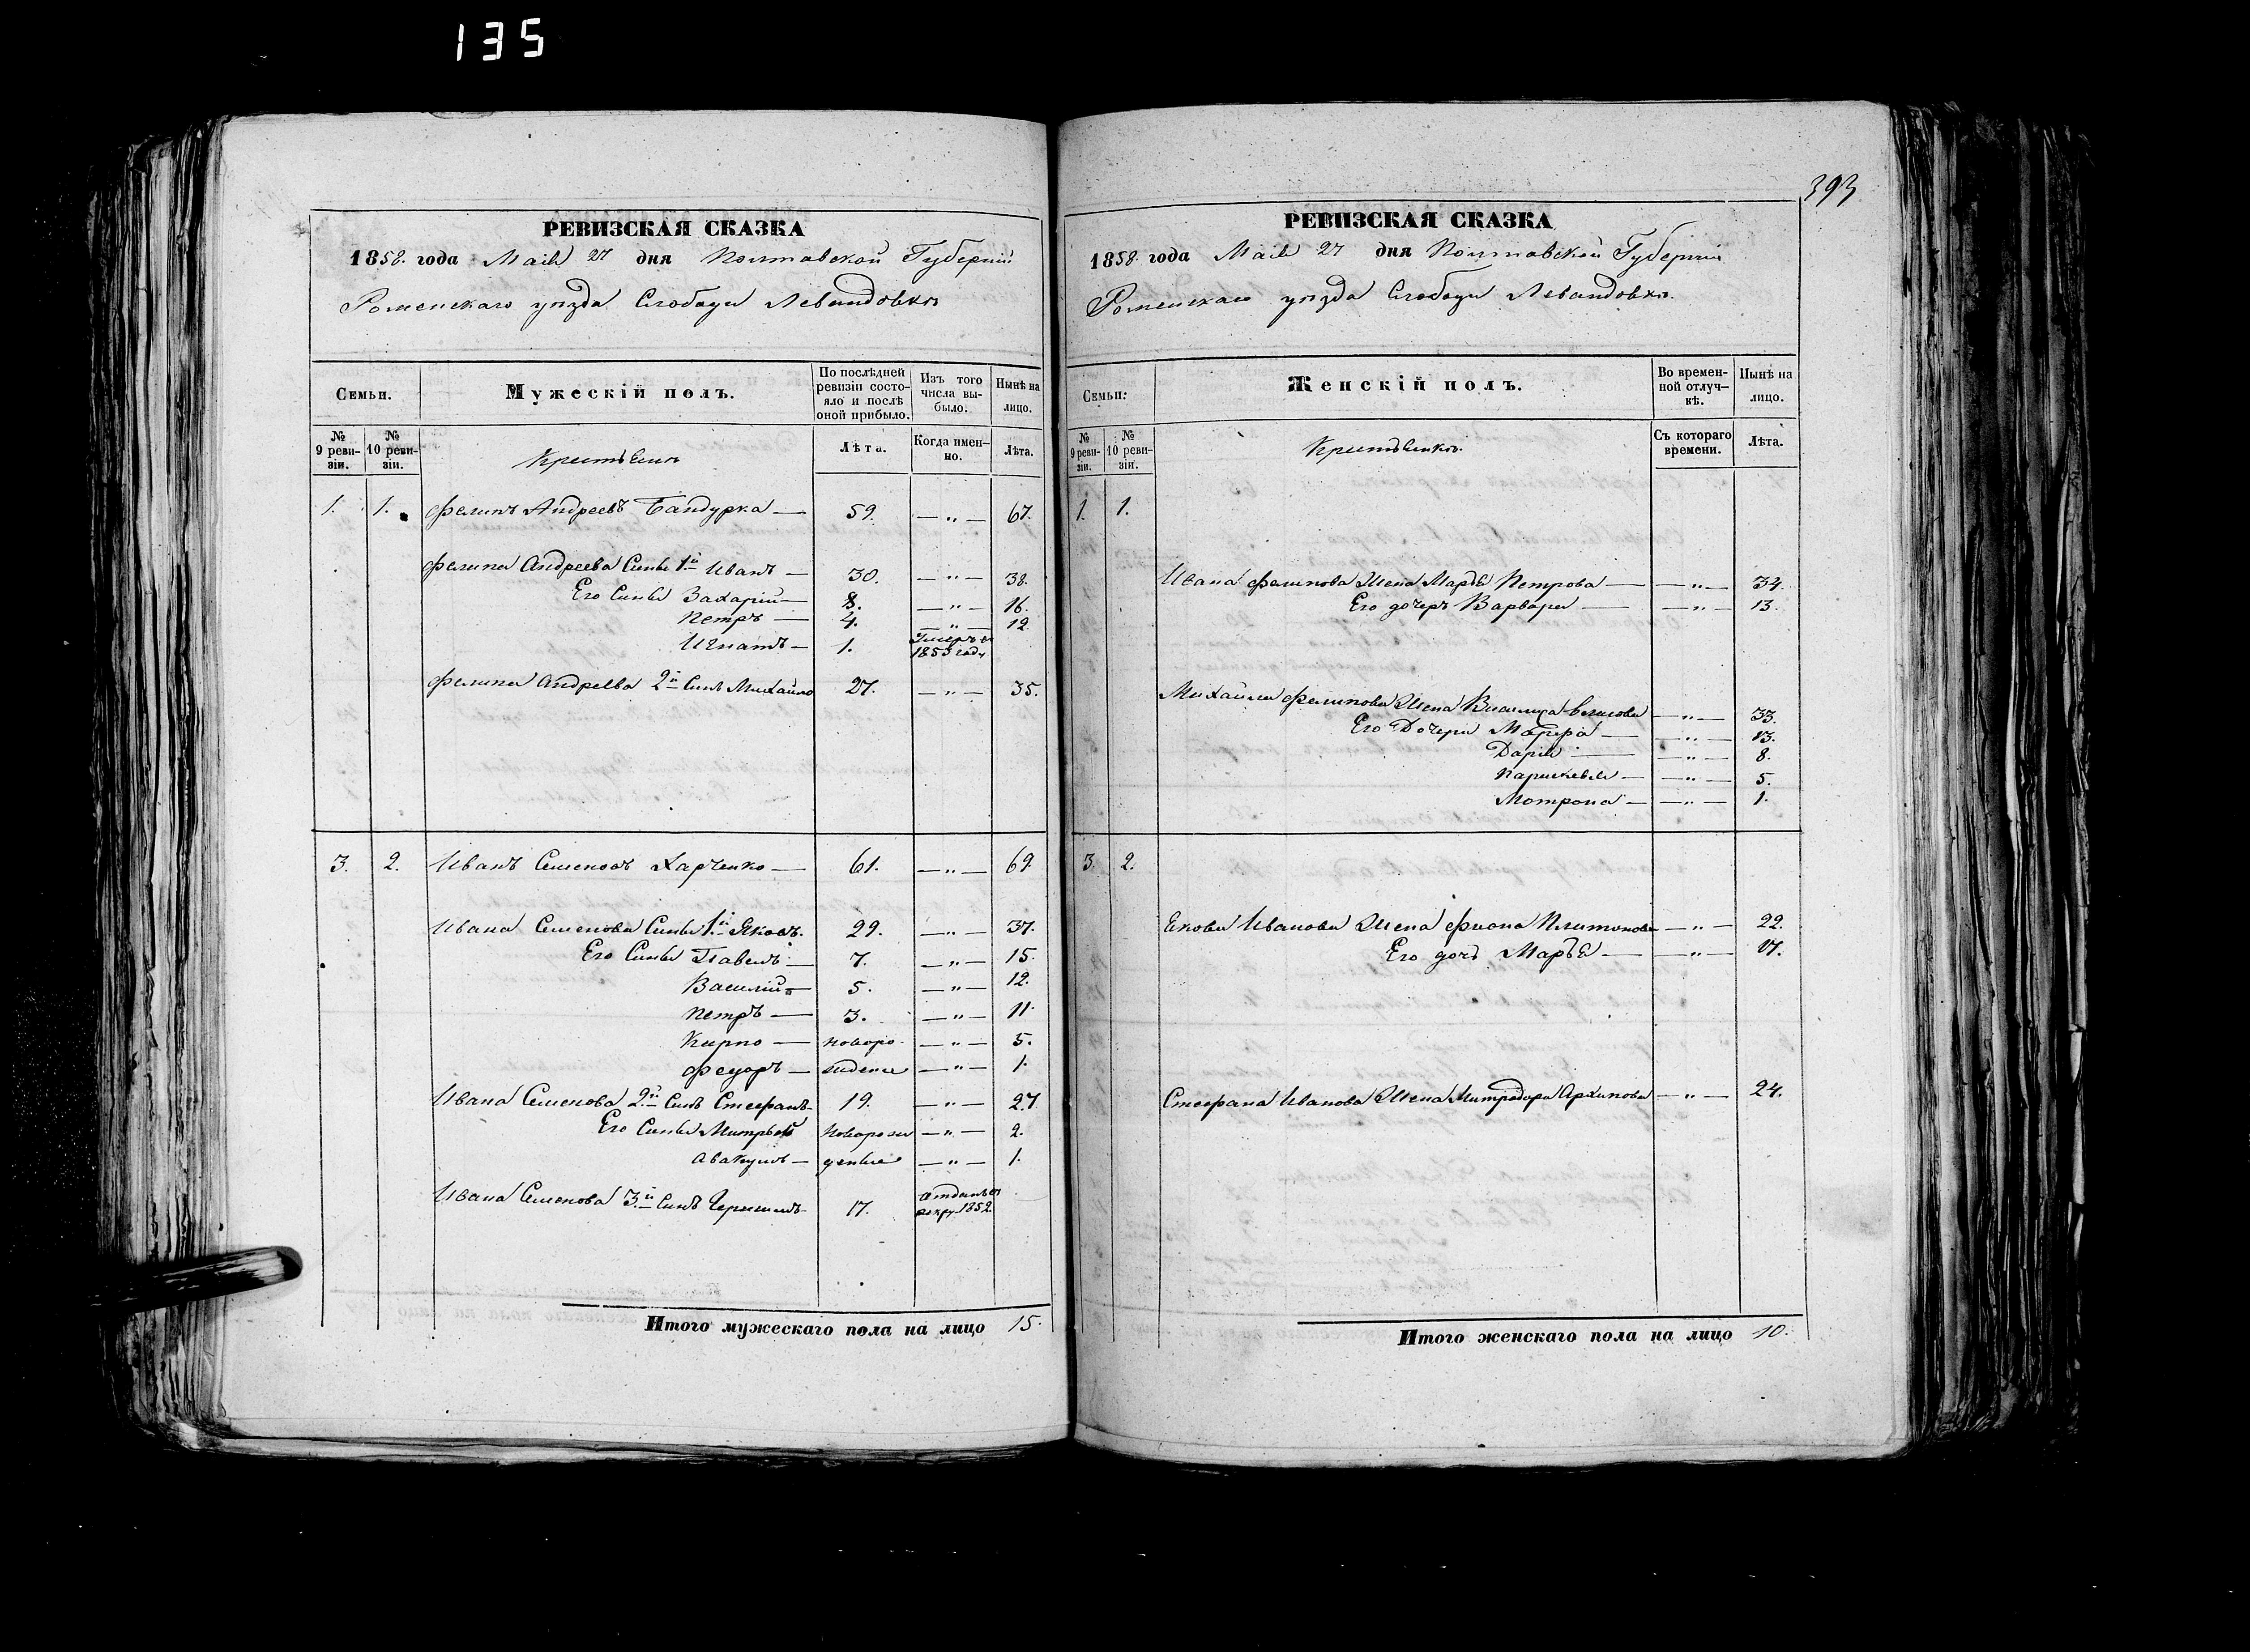 135
393
РЕВИЗСКАЯ СКАЗКА
1858. года Маія 27 дня Полтавской Губерніи
Роменскаго уѣзда Слободы Левандовки
Семьи.
Мужескій полъ.
По послѣдней ревизіи состояло и послѣ оной прибыло.
Изъ того числа выбыло.
Нынѣ на лицо.
№ 9 ревизіи.
№ 10 ревизіи.
Крестьяне
Лѣта.
Когда именно.
Лѣта.
1. 1. Филипъ Андреевъ Бандурка — 59. — „ — 67.
Филипа Андреева Сины 1й Иванъ — 30. — „ — 38.
Его Сины Захарій — 8. — „ — 16.
Петръ — 4. — „ — 12
Игнатъ — 1. Умеръ в 1853 году
Филипа Андреева 2й Синъ Михайло 27. — „ — 35.
3. 2. Иванъ Семеновъ Харченко — 61. — „ — 69
Ивана Семенова Сины 1й Яковъ. 29. — „ — 37.
Его Сины Павелъ — 7. — „ — 15.
Василій — 5. — „ — 12.
Петръ — 3. — „ — 11.
Кирпо — новоро — „ — 5.
Федоръ — жденые — „ — 1.
Ивана Семенова 2й Синъ Стефанъ 19. — „ — 27.
Его Сины Митрофа новорож — „ — 2.
Авакумъ — деные — „ — 1.
Ивана Семенова 3й Синъ 17. отданъ в рекру. 1852.
Итого мужескаго пола на лицо 15.
РЕВИЗСКАЯ СКАЗКА
1858. года Маія 27 дня Полтавской Губерніи
Роменскаго уѣзда Слободы Левандовки.
Семьи.
Женскій полъ.
Во временной отлучкѣ.
Нынѣ на лицо.
№ 9 ревизіи.
№ 10 ревизіи.
Крестьянки.
Съ котораго времени.
Лѣта.
1. 1.
Ивана Филипова Жена Марья Петрова — — „ — 34.
Его дочерь Варвара — — „ — 13.
Михайла Филипова Жена Василиса — „ — 33.
Его Дочери Марфа — — „ — 13.
Дарія — — „ — 8.
Парискевія — — „ — 5.
Мотрона — — „ — 1.
3. 2.
Якова Иванова Жена Фиона Платонова — „ — 22.
Его дочь Марья — — „ — 17.
Стефана Иванова Жена Митродора Архипова — „ — 24.
Итого женскаго пола на лицо 10.